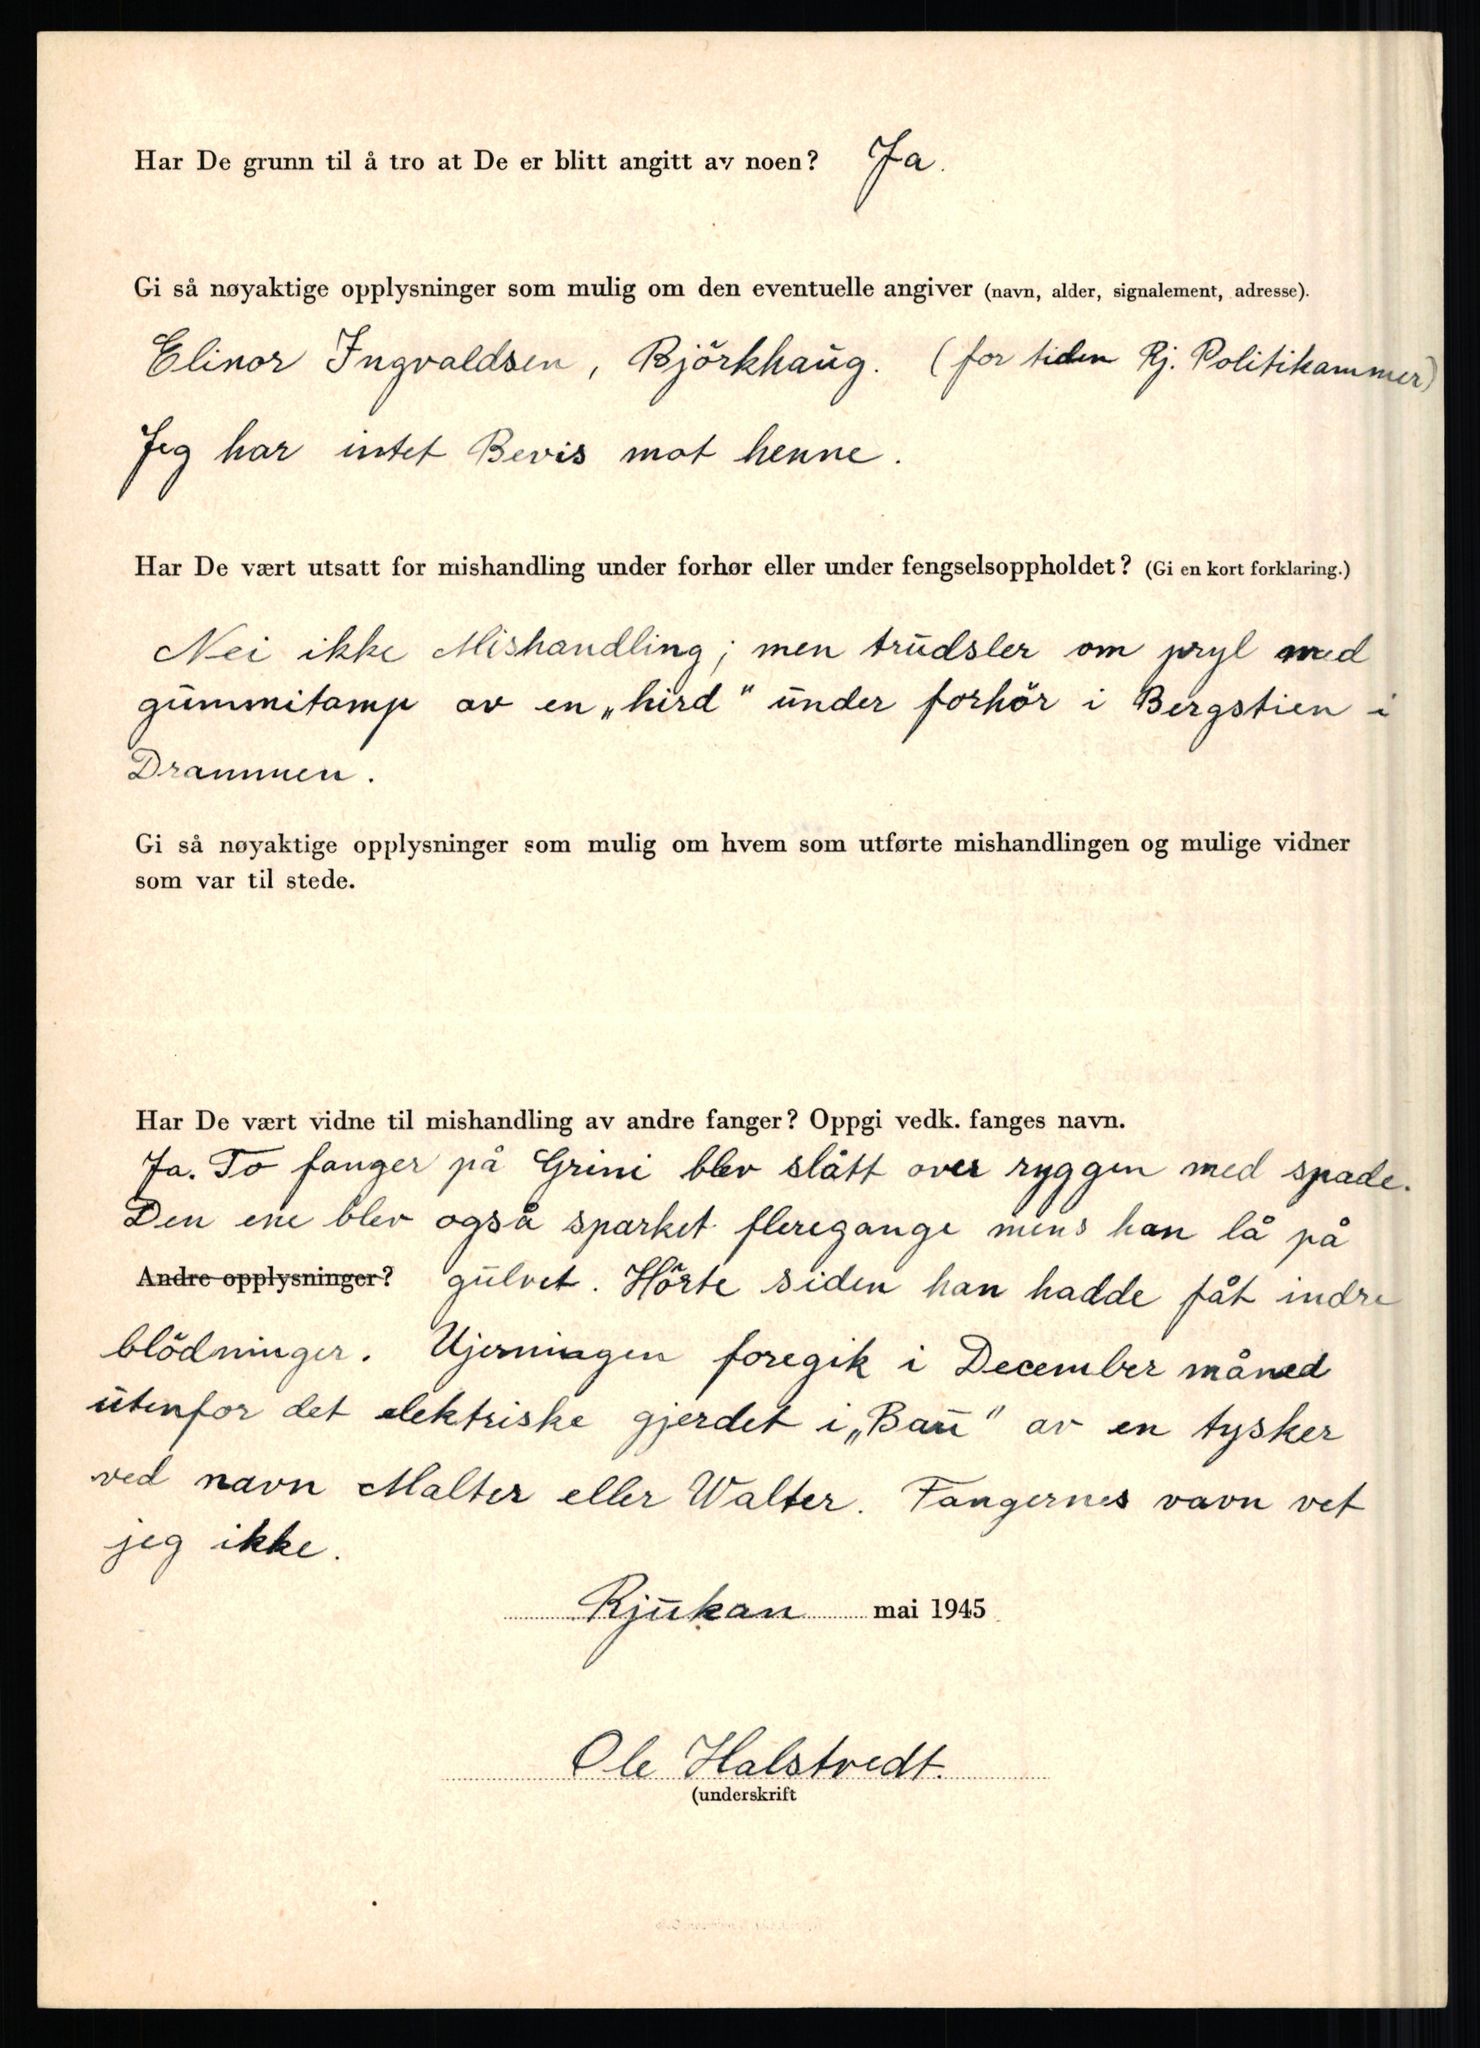 Har De grunn til å tro at De er blitt angitt av noen? Ja.
Gi så nøyaktige opplysninger som mulig om den eventuelle angiver (navn, alder, signalement, adresse).
Elinor Ingvaldsen, Björkhaug. (for tiden Rj. Politikammer)
Jeg har intet Bevis mot henne.
Har De vært utsatt for mishandling under forhør eller under fengselsoppholdet? (Gi en kort forklaring.)
Nei ikke Mishandling; men trudsler om pryl med
gummitamp av en „hird" under forhör i Bergstien i
Drammen.
Gi så nøyaktige opplysninger som mulig om hvem som utførte mishandlingen og mulige vidner
som var til stede.
Har De vært vidne til mishandling av andre fanger? Oppgi vedk. fanges navn.
Ja. To fanger på Grini blev slått over ryggen med spade.
Den ene blev også sparket fleregange mens han lå på
Andre opplysninger? gulvet. Hörte siden han hadde fåt indre
blödninger. Ujerningen foregik i December måned
utenfor det elektriske gjerdet i „Bau" av en tysker
ved navn Malter eller Walter. Fangernes navn vet
jeg ikke.
Rjukan mai 1945
Ole Halstvedt.
(underskrift